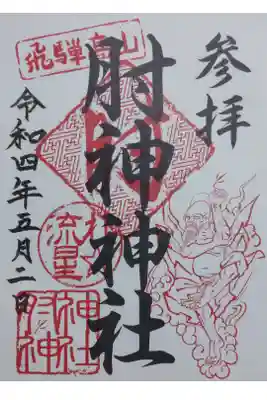 参拝
飛騨高山
肘神神社
流星
神社
肘神
令和四年五月二日